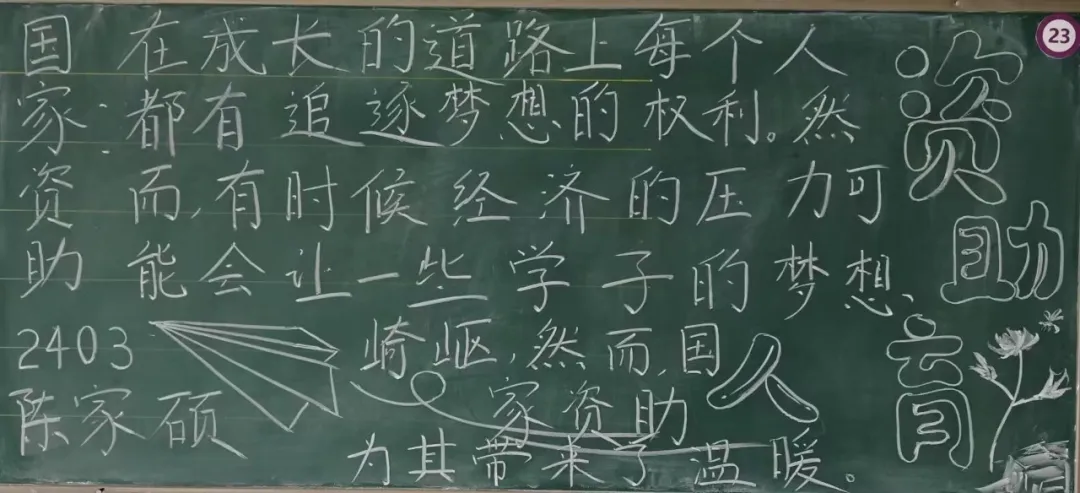 国家资助:
在成长的道路上每个人
都有追逐梦想的权利。然
而,有时候经济的压力可
能会让一些学子的梦想、
崎岖,然而,国
家资助
为其带来了温暖。
2403
陈家硕
资助育人
23